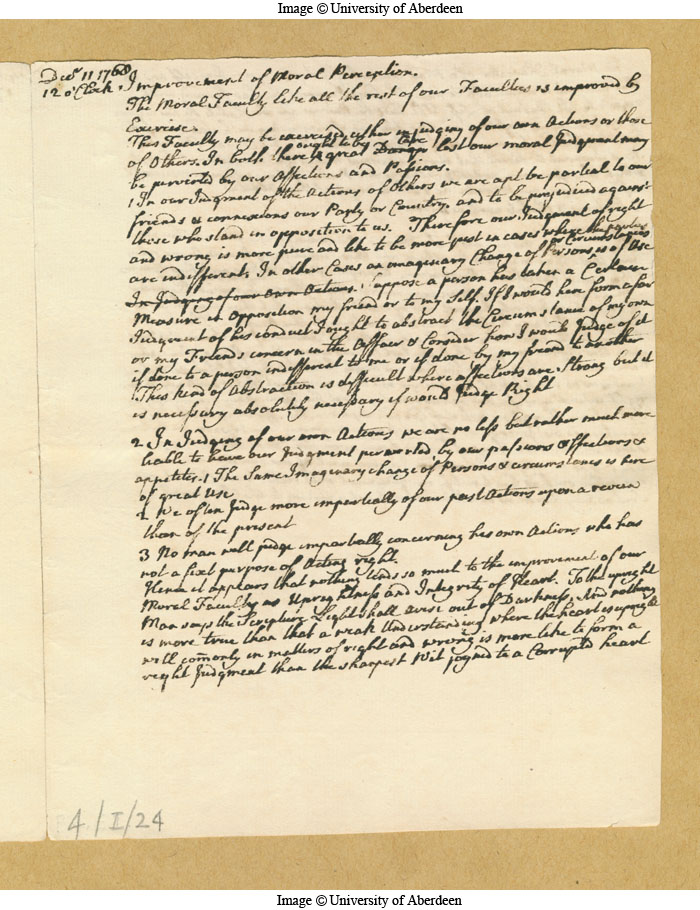 Image © University of Aberdeen
Decr 11 1768
12 o'Clock. Improvement of Moral Perception.
The Moral Faculty like all the rest of our Faculties is improved by
Exercise.
This Faculty may be exercised either in judging of our own Actions or those
of Others. In both there ought to be great Care lest our moral Judgment may
be perverted by our Affections and Passions.
1 In our Judgment of the Actions of Others we are apt be partial to our
friends & connexions our Party or Country, and to be prejudiced against
those who stand in opposition to us. Therefore our Judgment of right
and wrong is more pure and like to be more just in cases where the parties
are indifferent. In other Cases an imaginary Change of Persons or Circumstances is of Use
In Judging of our own Actions. Suppose a person has taken a Certain
Measure in Opposition my friend or to my Self. If I would here form a fair
Judgment of his conduct I ought to abstract the Circumstance of my own
or my Friends concern in the Affair & Consider how I would Judge of it
if done to a person indifferent to me or if done by my friend to another
This kind of Abstraction is difficult where affections are Strong but it
is necessary absolutely necessary if would Judge Right
2 In Judging of our own Actions we are no less but rather much more
liable to have our Judgment perverted by our passions & affections &
appetites. 1 The Same Imaginary change of Persons & circumstances is here
of great Use
2 We often Judge more impartially of our past Actions upon a review
than of the present
3 No man will judge impartially concerning his own Actions who has
not a fixt purpose of Acting right.
Hence it appears that nothing tends so much to the improvement of our
Moral Faculty as Uprightness and Integrity of Heart. To the upright
Man says the Scripture Light shall arise out of Darkness. And nothing
is more true than that a weak Understanding where the heart is upright
will commonly in matters of right and wrong is more like to form a
right Judgment than the sharpest Wit joyned to a Corrupted heart
4/I/24
Image © University of Aberdeen